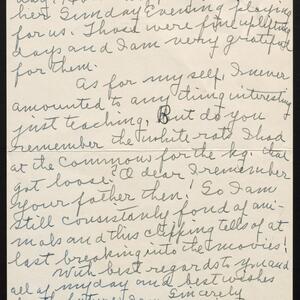 her Sunday Evening playing
for us. Those were fine uplifting
days and I am very grateful
for them.
As for myself, I never
amounted to any thing interesting
just teaching. But do you
remember the white rats I had
at the Commons for the kg. that
got loose? O dear I remember
your father then! So I am
still constantly fond of ani-
mals and this clipping tells of at
last breaking into the movies!
With best regards to you and
all of my day and best wishes
Sincerely